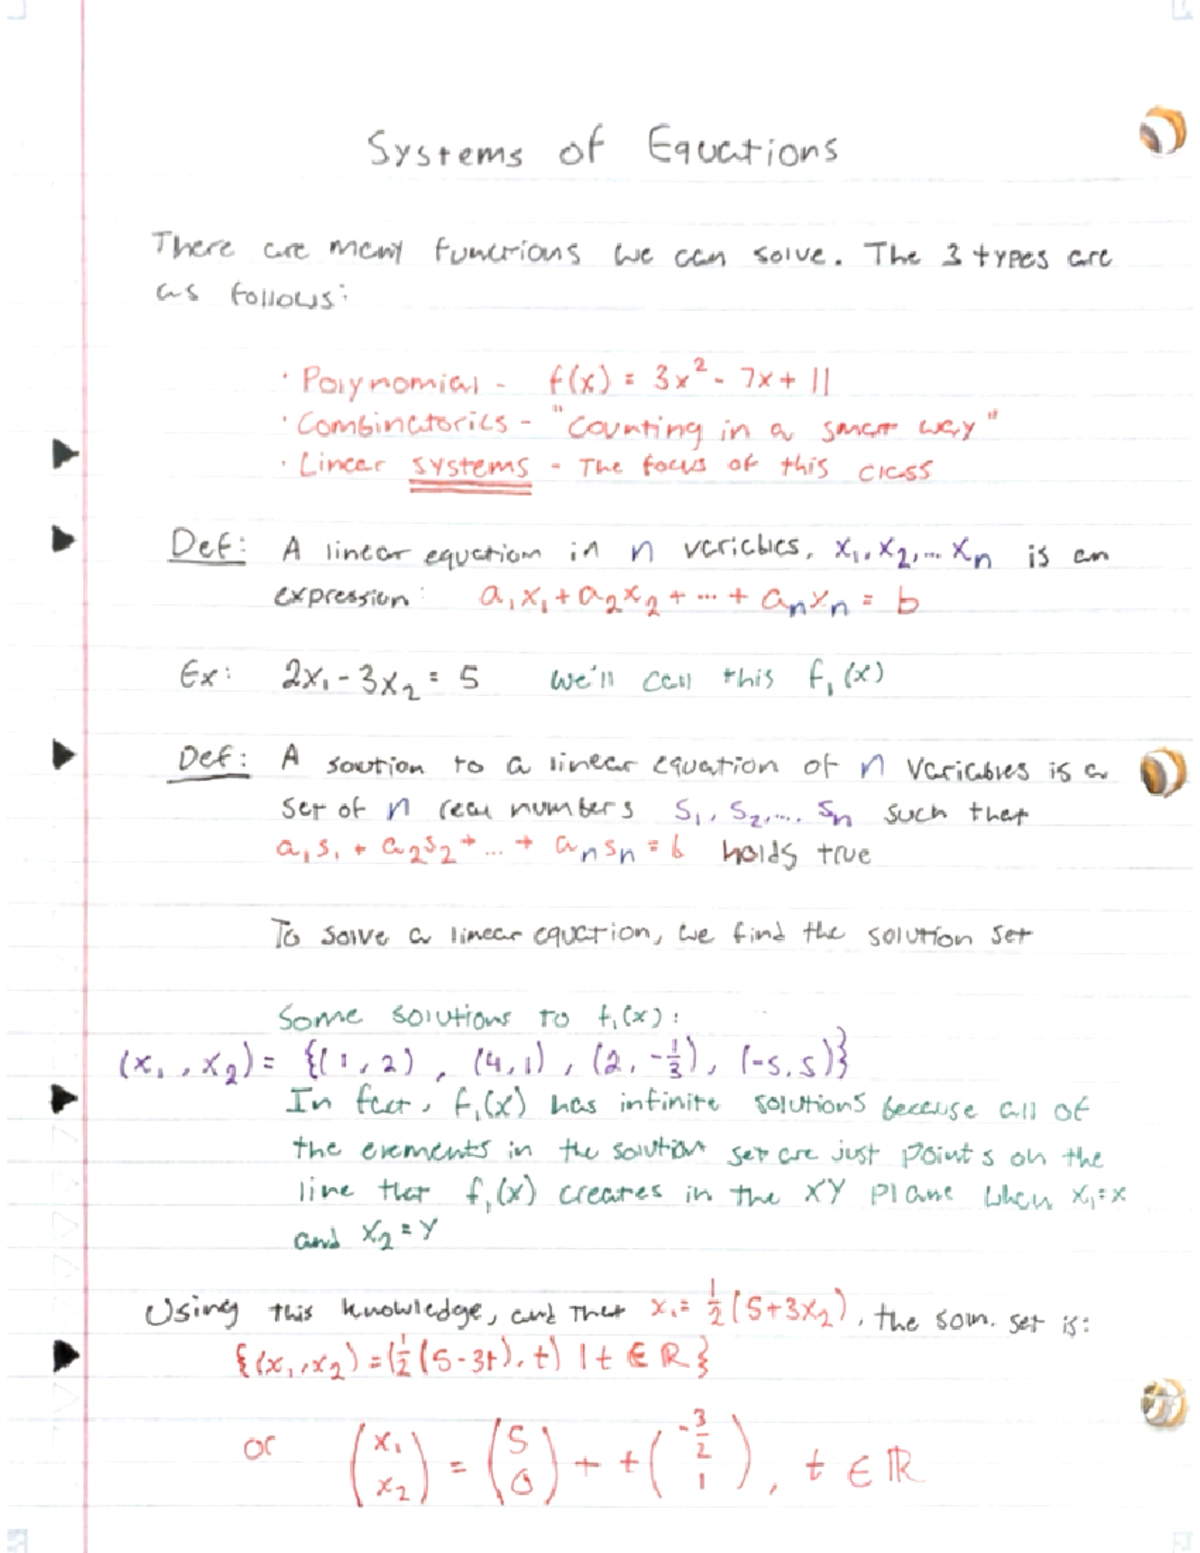 Systems of Equations
There are many functions we can solve. The 3 types are
as follows:
· Polynomial - f(x) = 3x² - 7x + 11
· Combinatorics - "Counting in a smart way"
· Linear systems - The focus of this class
Def: A linear equation in n variables, x₁, x₂, ... xₙ is an
expression: a₁x₁ + a₂x₂ + ... + aₙxₙ = b
Ex: 2x₁ - 3x₂ = 5 we'll call this f₁(x)
Def: A soution to a linear equation of n variables is a
set of n real numbers s₁, s₂, ..., sₙ such that
a₁s₁ + a₂s₂ + ... + aₙsₙ = b holds true
To solve a linear equation, we find the solution set
Some solutions to f₁(x):
(x₁, x₂) = {(1, 2), (4, 1), (2, -1/3), (-5, 5)}
In fact, f₁(x) has infinite solutions because all of
the elements in the solution set are just points on the
line that f₁(x) creates in the XY plane when x₁ = x
and x₂ = y
Using this knowledge, and that x₁ = 1/2(5+3x₂), the soln. set is:
{(x₁, x₂) = (1/2(5-3t), t) | t ∈ ℝ}
or (x₁ x₂) = (5 0) + t(-3/2 1), t ∈ ℝ